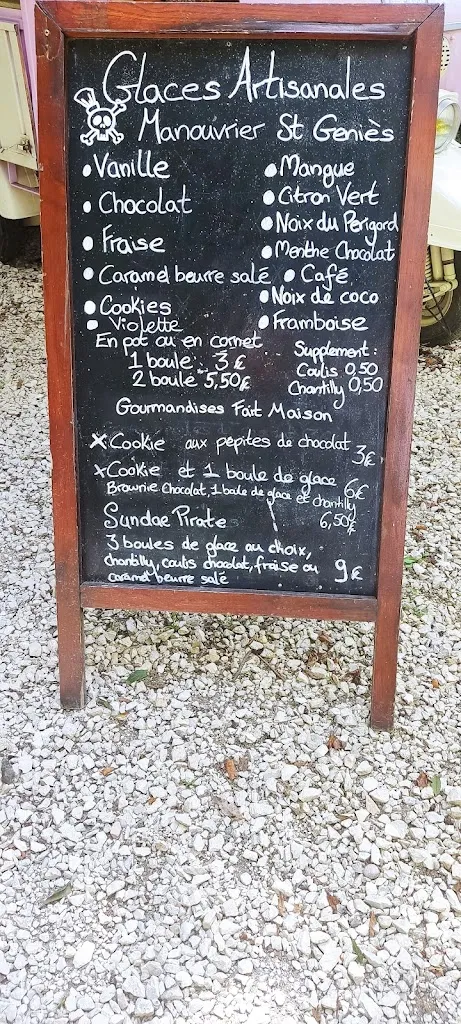 Glaces Artisanales
Manouvrier St Geniès
• Vanille
• Chocolat
• Fraise
• Caramel beurre salé
• Cookies
• Violette
• Mangue
• Citron Vert
• Noix du Périgord
• Menthe Chocolat
• Café
• Noix de coco
• Framboise
En pot ou en cornet
1 boule . 3 €
2 boule 5,50€
Supplement :
Coulis 0,50
Chantilly 0,50
Gourmandises Fait Maison
x Cookie aux pepites de chocolat 3€
x Cookie et 1 boule de glace 6€
Brownie Chocolat, 1 boule de glace et chantilly 6,50€
Sundae Pirate
3 boules de glace au choix,
chantilly, coulis chocolat, fraise ou
caramel beurre salé 9€